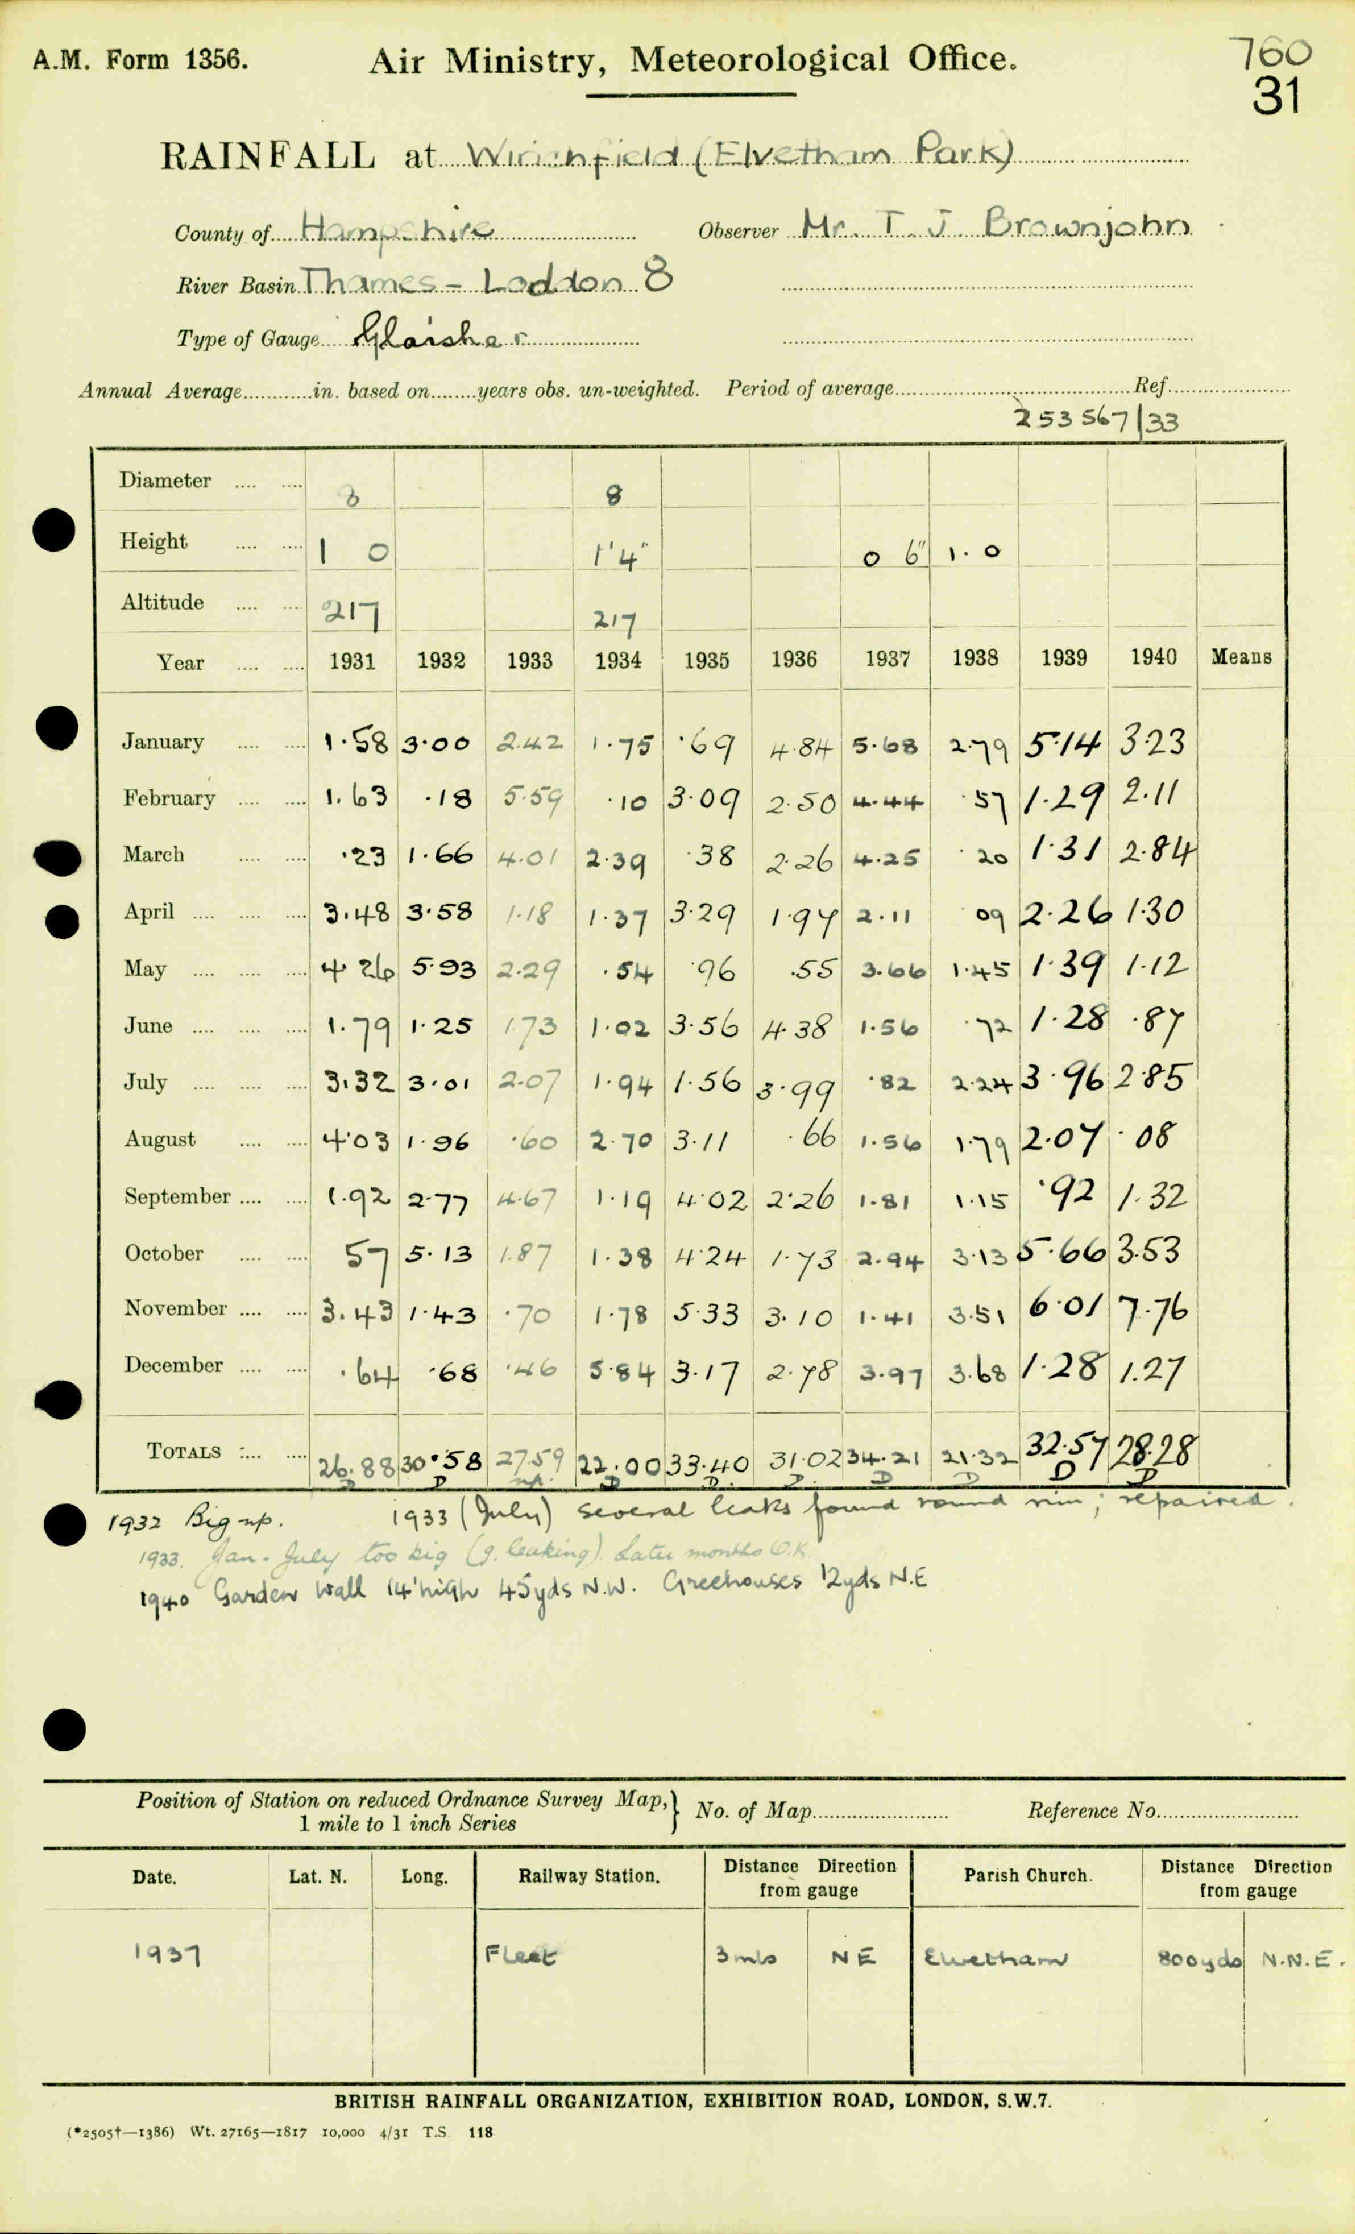 A.M. Form 1356. Air Ministry, Meteorological Office. 760
31
RAINFALL at Winchfield (Elvetham Park)
County of Hampshire Observer Mr. T. J. Brownjohn
River Basin Thames - Loddon 8
Type of Gauge Glaisher
Annual Average in. based on years obs. un-weighted. Period of average Ref.
253567/33
Diameter 8 8
Height 1 0 1'4" 0 6" 1.0
Altitude 217 217
Year 1931 1932 1933 1934 1935 1936 1937 1938 1939 1940 Means
January 1.58 3.00 2.42 1.75 .69 4.84 5.68 2.79 5.14 3.23
February 1.63 .18 5.59 .10 3.09 2.50 4.44 .57 1.29 2.11
March .23 1.66 4.01 2.39 .38 2.26 4.25 .20 1.31 2.84
April 3.48 3.58 1.18 1.37 3.29 1.97 2.11 09 2.26 1.30
May 4 26 5.93 2.29 .54 .96 .55 3.66 1.45 1.39 1.12
June 1.79 1.25 1.73 1.02 3.56 4.38 1.56 .72 1.28 .87
July 3.32 3.01 2.07 1.94 1.56 3.99 .82 2.24 3.96 2.85
August 4.03 1.96 .60 2.70 3.11 .66 1.56 1.79 2.07 .08
September 1.92 2.77 4.67 1.19 4.02 2.26 1.81 1.15 .92 1.32
October 57 5.13 1.87 1.38 4.24 1.73 2.94 3.13 5.66 3.53
November 3.43 1.43 .70 1.78 5.33 3.10 1.41 3.51 6.01 7.76
December .64 .68 .46 5.84 3.17 2.78 3.97 3.68 1.28 1.27
TOTALS 26.88 30.58 27.59 22.00 33.40 31.02 34.21 21.32 32.57 28.28
D D np. D D. D. D D D D
1932 Big np. 1933 (July) several leaks found round rim; repaired.
1933. Jan-July too big (g. leaking). Later months O.K.
1940 Garden Wall 14' high 45yds N.W. Greehouses 12yds N.E
Position of Station on reduced Ordnance Survey Map,} No. of Map Reference No.
1 mile to 1 inch Series
Date. Lat. N. Long. Railway Station. Distance Direction Parish Church. Distance Direction
from gauge from gauge
1937 Fleet 3 mls NE Elvetham 800yds N.N.E.
BRITISH RAINFALL ORGANIZATION, EXHIBITION ROAD, LONDON, S.W.7.
(*2505†—1386) Wt. 27165—1817 10,000 4/31 T.S. 118